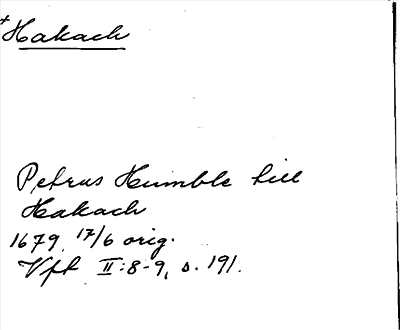 +Hakach
Petrus Humble till
Hakach
1679 17/6 orig.
Vft II:8-9, s. 191.